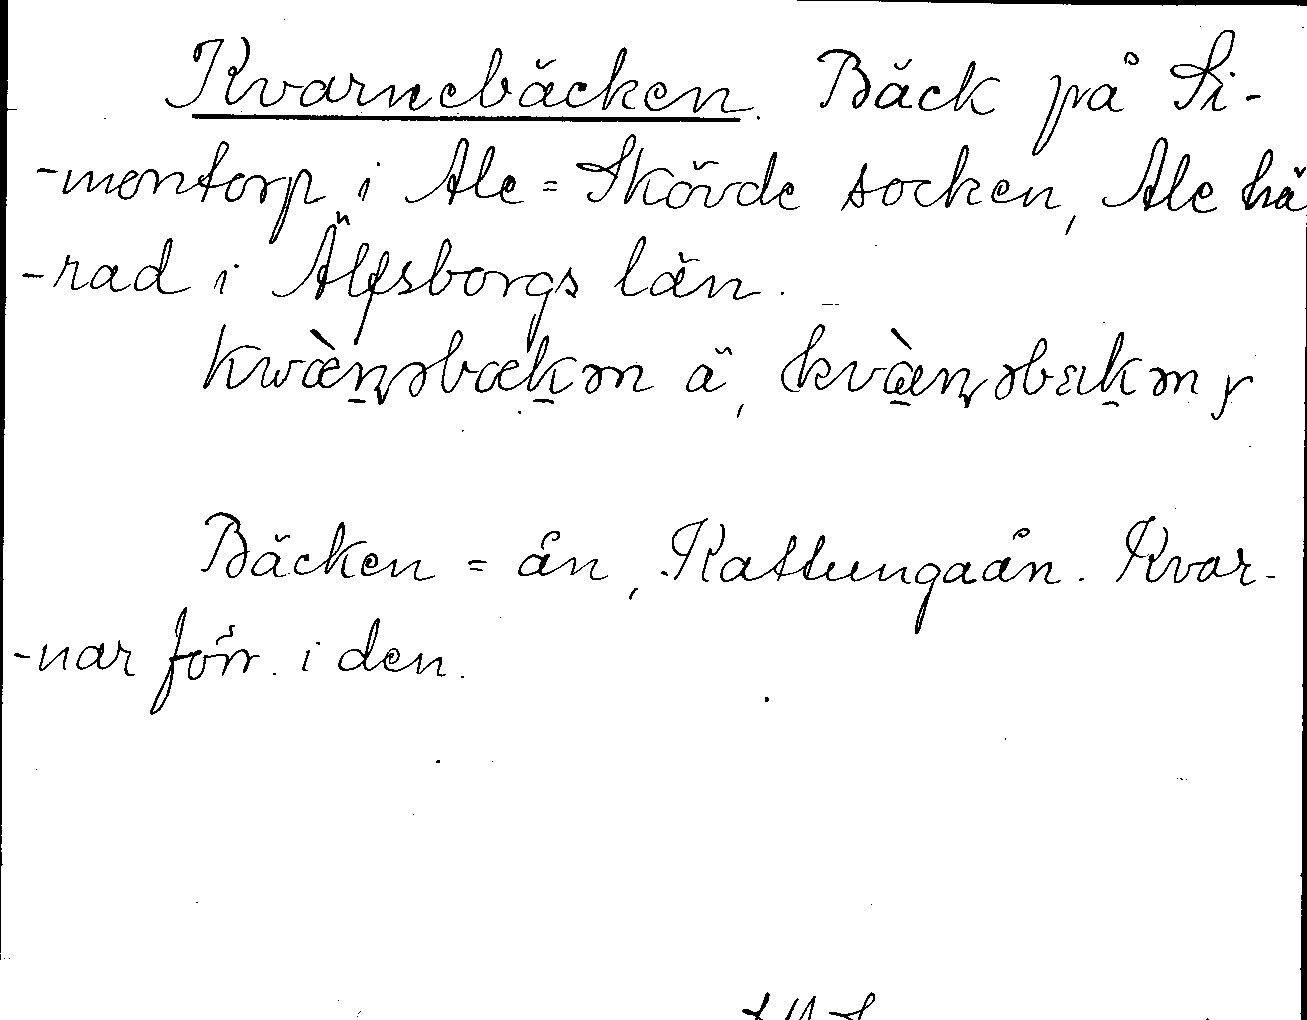 Kvarnebäcken. Bäck på Si-
-montorp i Ale=Skövde socken, Ale hä
-rad i Älfsborgs län.
kwàrnəbækən ä, kvàrnəbækən y
Bäcken = ån, Kattungaån. Kvar-
-nar förr i den.